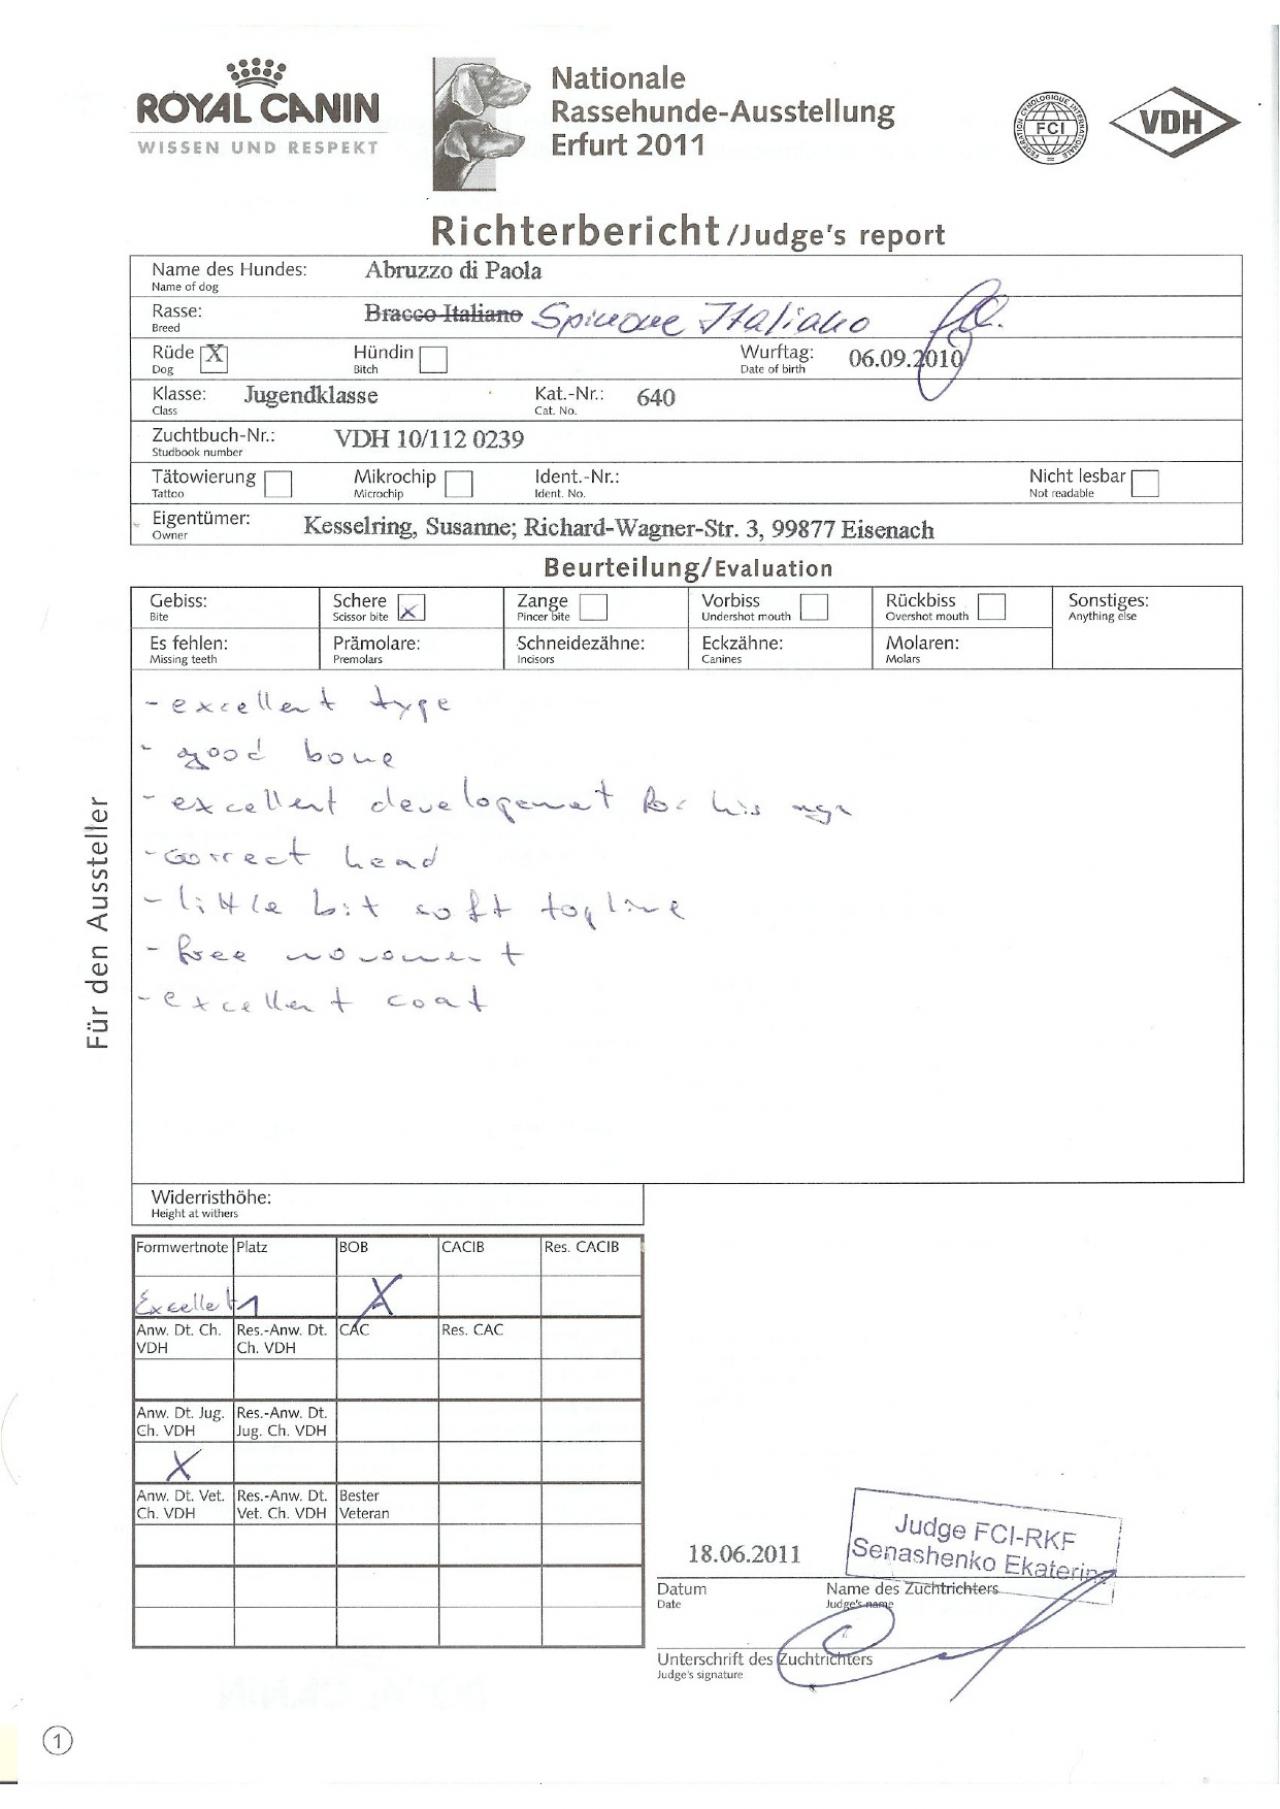 ROYAL CANIN
WISSEN UND RESPEKT
Nationale
Rassehunde-Ausstellung
Erfurt 2011
FCI
VDH
Richterbericht/Judge's report
Name des Hundes: Abruzzo di Paola
Name of dog
Rasse: Bracco Italiano Spinone Italiano
Breed
Rüde X Hündin Wurftag: 06.09.2010
Dog Bitch Date of birth
Klasse: Jugendklasse Kat.-Nr.: 640
Class Cat. No.
Zuchtbuch-Nr.: VDH 10/112 0239
Studbook number
Tätowierung Mikrochip Ident.-Nr.: Nicht lesbar
Tattoo Microchip Ident. No. Not readable
Eigentümer: Kesselring, Susanne; Richard-Wagner-Str. 3, 99877 Eisenach
Owner
Beurteilung/Evaluation
Gebiss: Schere X Zange Vorbiss Rückbiss Sonstiges:
Bite Scissor bite Pincer bite Undershot mouth Overshot mouth Anything else
Es fehlen: Prämolare: Schneidezähne: Eckzähne: Molaren:
Missing teeth Premolars Incisors Canines Molars
- excellent type
- good bone
- excellent development for his age
- correct head
- little bit soft topline
- free movement
- excellent coat
Für den Aussteller
Widerristhöhe:
Height at withers
Formwertnote Platz BOB CACIB Res. CACIB
Excellet 1 X
Anw. Dt. Ch. Res.-Anw. Dt. CAC Res. CAC
VDH Ch. VDH
Anw. Dt. Jug. Res.-Anw. Dt.
Ch. VDH Jug. Ch. VDH
X
Anw. Dt. Vet. Res.-Anw. Dt. Bester
Ch. VDH Vet. Ch. VDH Veteran
Judge FCI-RKF
Senashenko Ekaterina
18.06.2011
Datum Name des Zuchtrichters
Date Judge's name
Unterschrift des Zuchtrichters
Judge's signature
1